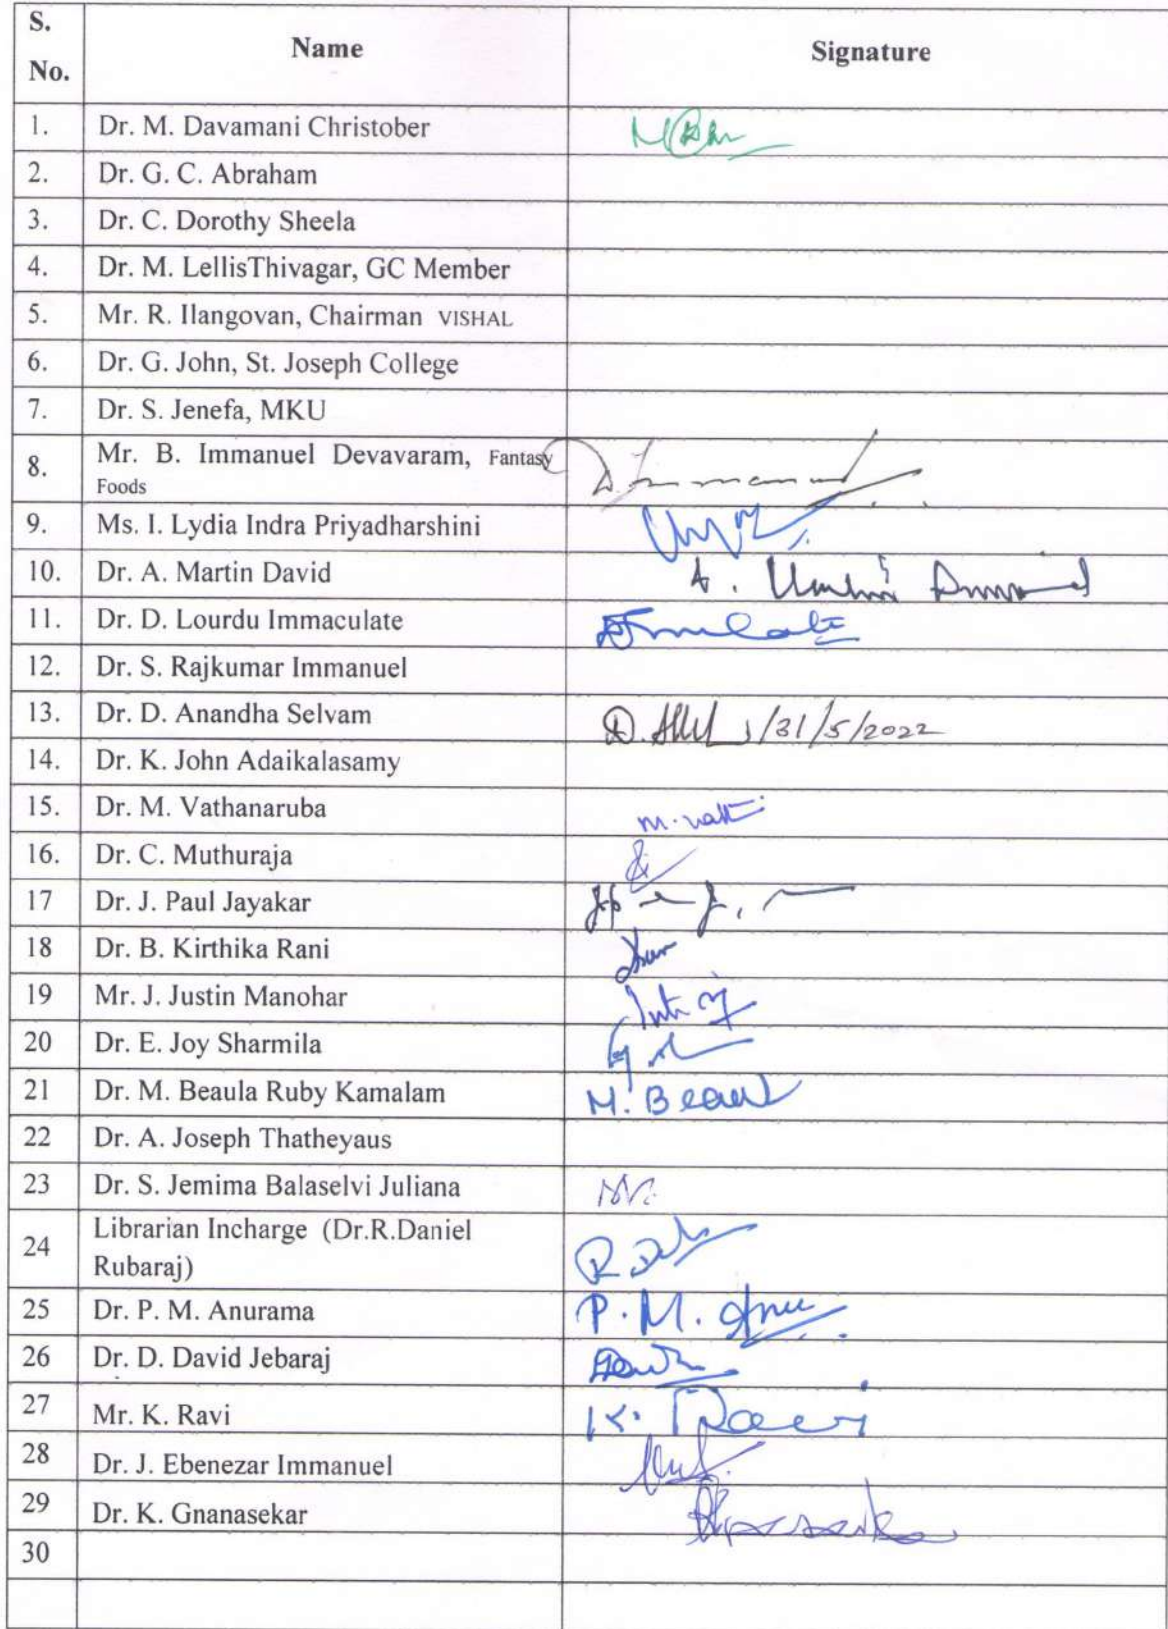 S. No. Name Signature
1. Dr. M. Davamani Christober
2. Dr. G. C. Abraham
3. Dr. C. Dorothy Sheela
4. Dr. M. LellisThivagar, GC Member
5. Mr. R. Ilangovan, Chairman VISHAL
6. Dr. G. John, St. Joseph College
7. Dr. S. Jenefa, MKU
8. Mr. B. Immanuel Devavaram, Fantasy
Foods
9. Ms. I. Lydia Indra Priyadharshini
10. Dr. A. Martin David
11. Dr. D. Lourdu Immaculate
12. Dr. S. Rajkumar Immanuel
13. Dr. D. Anandha Selvam 31/5/2022
14. Dr. K. John Adaikalasamy
15. Dr. M. Vathanaruba
16. Dr. C. Muthuraja
17 Dr. J. Paul Jayakar
18 Dr. B. Kirthika Rani
19 Mr. J. Justin Manohar
20 Dr. E. Joy Sharmila
21 Dr. M. Beaula Ruby Kamalam M. Beaul
22 Dr. A. Joseph Thatheyaus
23 Dr. S. Jemima Balaselvi Juliana
24 Librarian Incharge (Dr.R.Daniel
Rubaraj)
25 Dr. P. M. Anurama P. M. Anu
26 Dr. D. David Jebaraj
27 Mr. K. Ravi K. Ravi
28 Dr. J. Ebenezar Immanuel
29 Dr. K. Gnanasekar
30